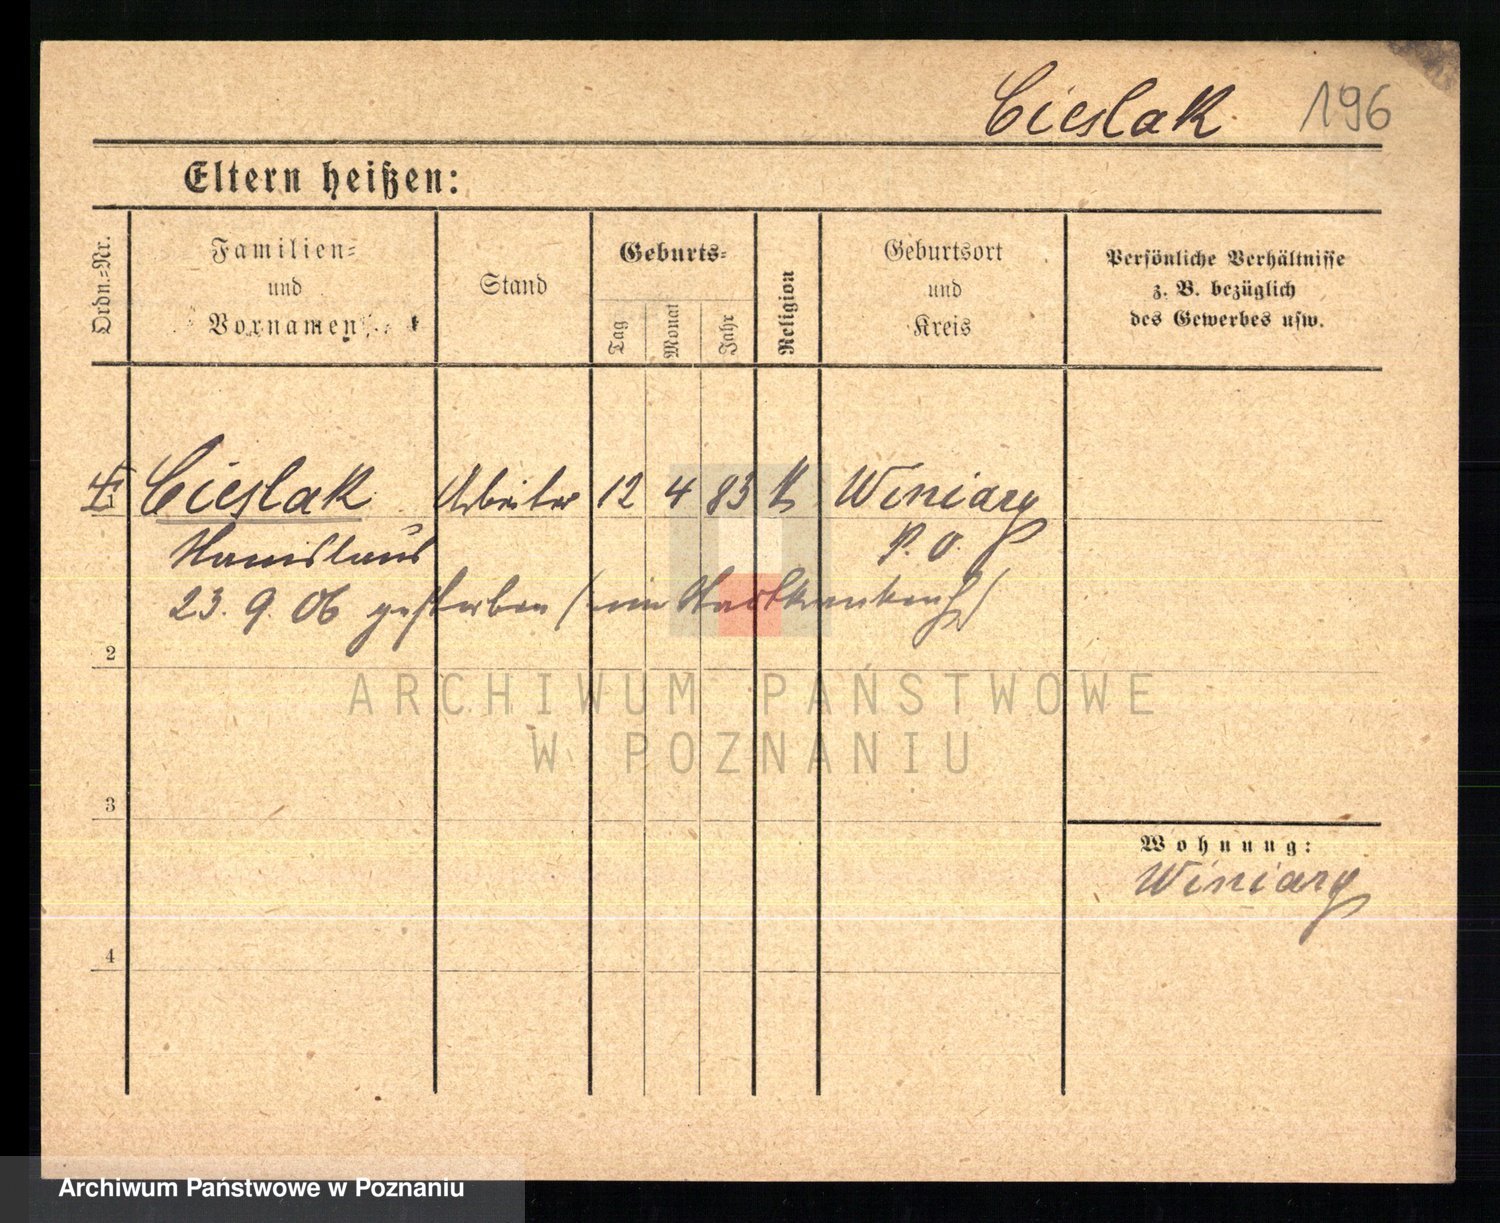 Cieslak 196
Eltern heißen:
Ordn.-Nr.
Familien-
und
Vornamen
Stand
Geburts-
Tag
Monat
Jahr
Religion
Geburtsort
und
Kreis
Persönliche Verhältnisse
z. B. bezüglich
des Gewerbes usw.
Cieslak Arbeiter 12 4 83 k Winiary
Stanislaus P. O.
23. 9. 06 gestorben (im Stadtkrankenh)
2
3
4
Wohnung:
Winiary
ARCHIWUM PAŃSTWOWE
W POZNANIU
Archiwum Państwowe w Poznaniu